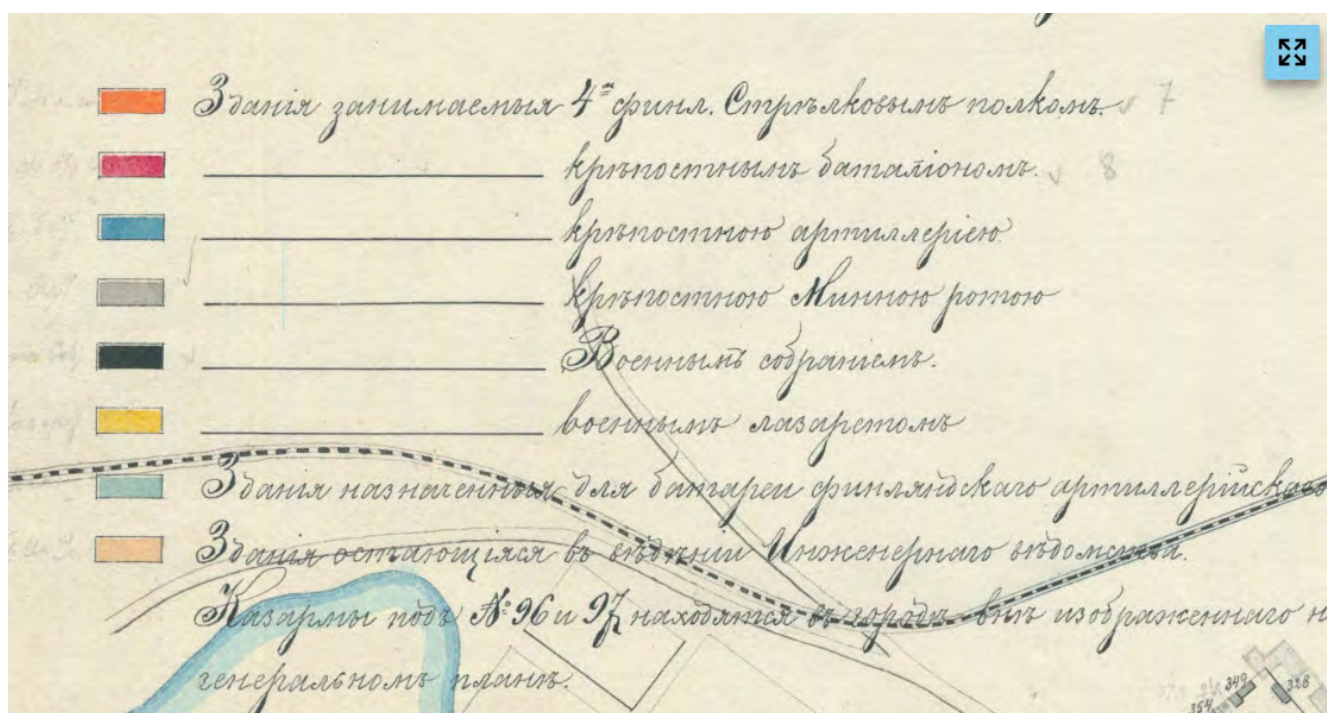 Зданія занимаемыя 4м финл. Стрѣлковымъ полкомъ. 7
крѣпостнымъ баталіономъ. 8
крѣпостною артиллеріею
крѣпостною Минною ротою
Военнымъ собраніемъ.
военнымъ лазаретомъ
Зданія назначенныя для батареи финляндскаго артиллерійскаго
Зданія остающіяся въ вѣдѣніи Инженернаго вѣдомства.
Казармы подъ №: 96 и 97 находятся въ городѣ внѣ изображеннаго н
генеральномъ планѣ.
349 328
354